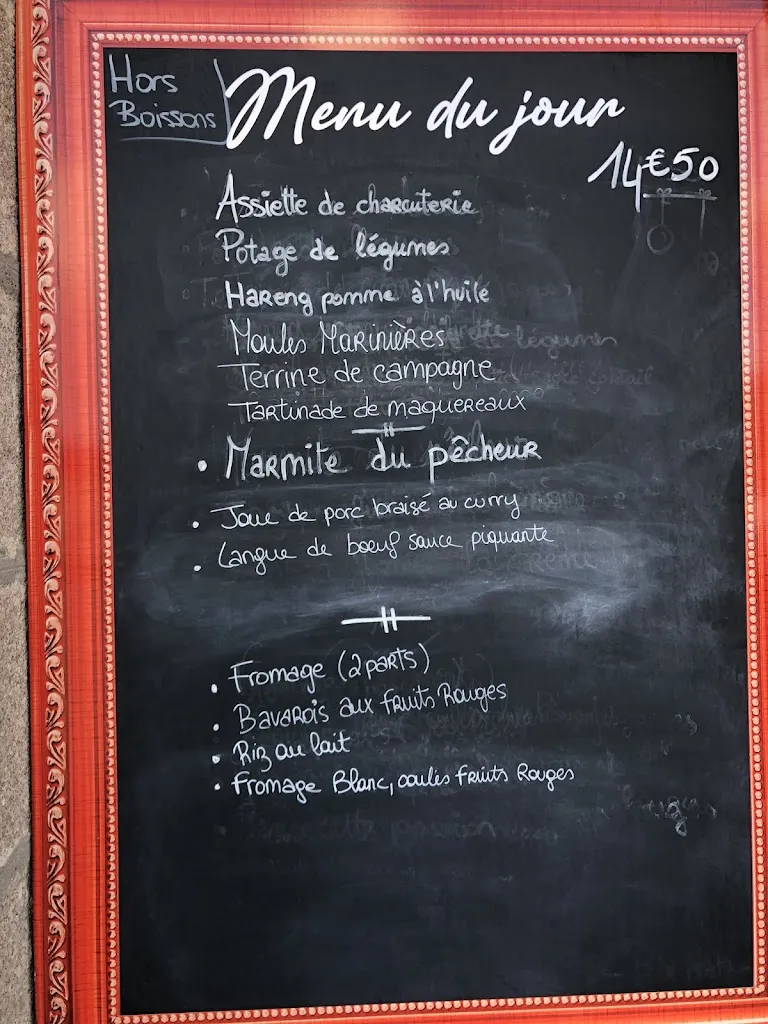 Hors
Boissons
Menu du jour
14€50
Assiette de charcuterie
Potage de légumes
Hareng pomme à l'huile
Moules Marinières
Terrine de campagne
Tartinade de maquereaux
• Marmite du pêcheur
• Joue de porc braisé au curry
• Langue de boeuf sauce piquante
• Fromage (2 parts)
• Bavarois aux fruits Rouges
• Riz au lait
• Fromage Blanc, coulis fruits Rouges